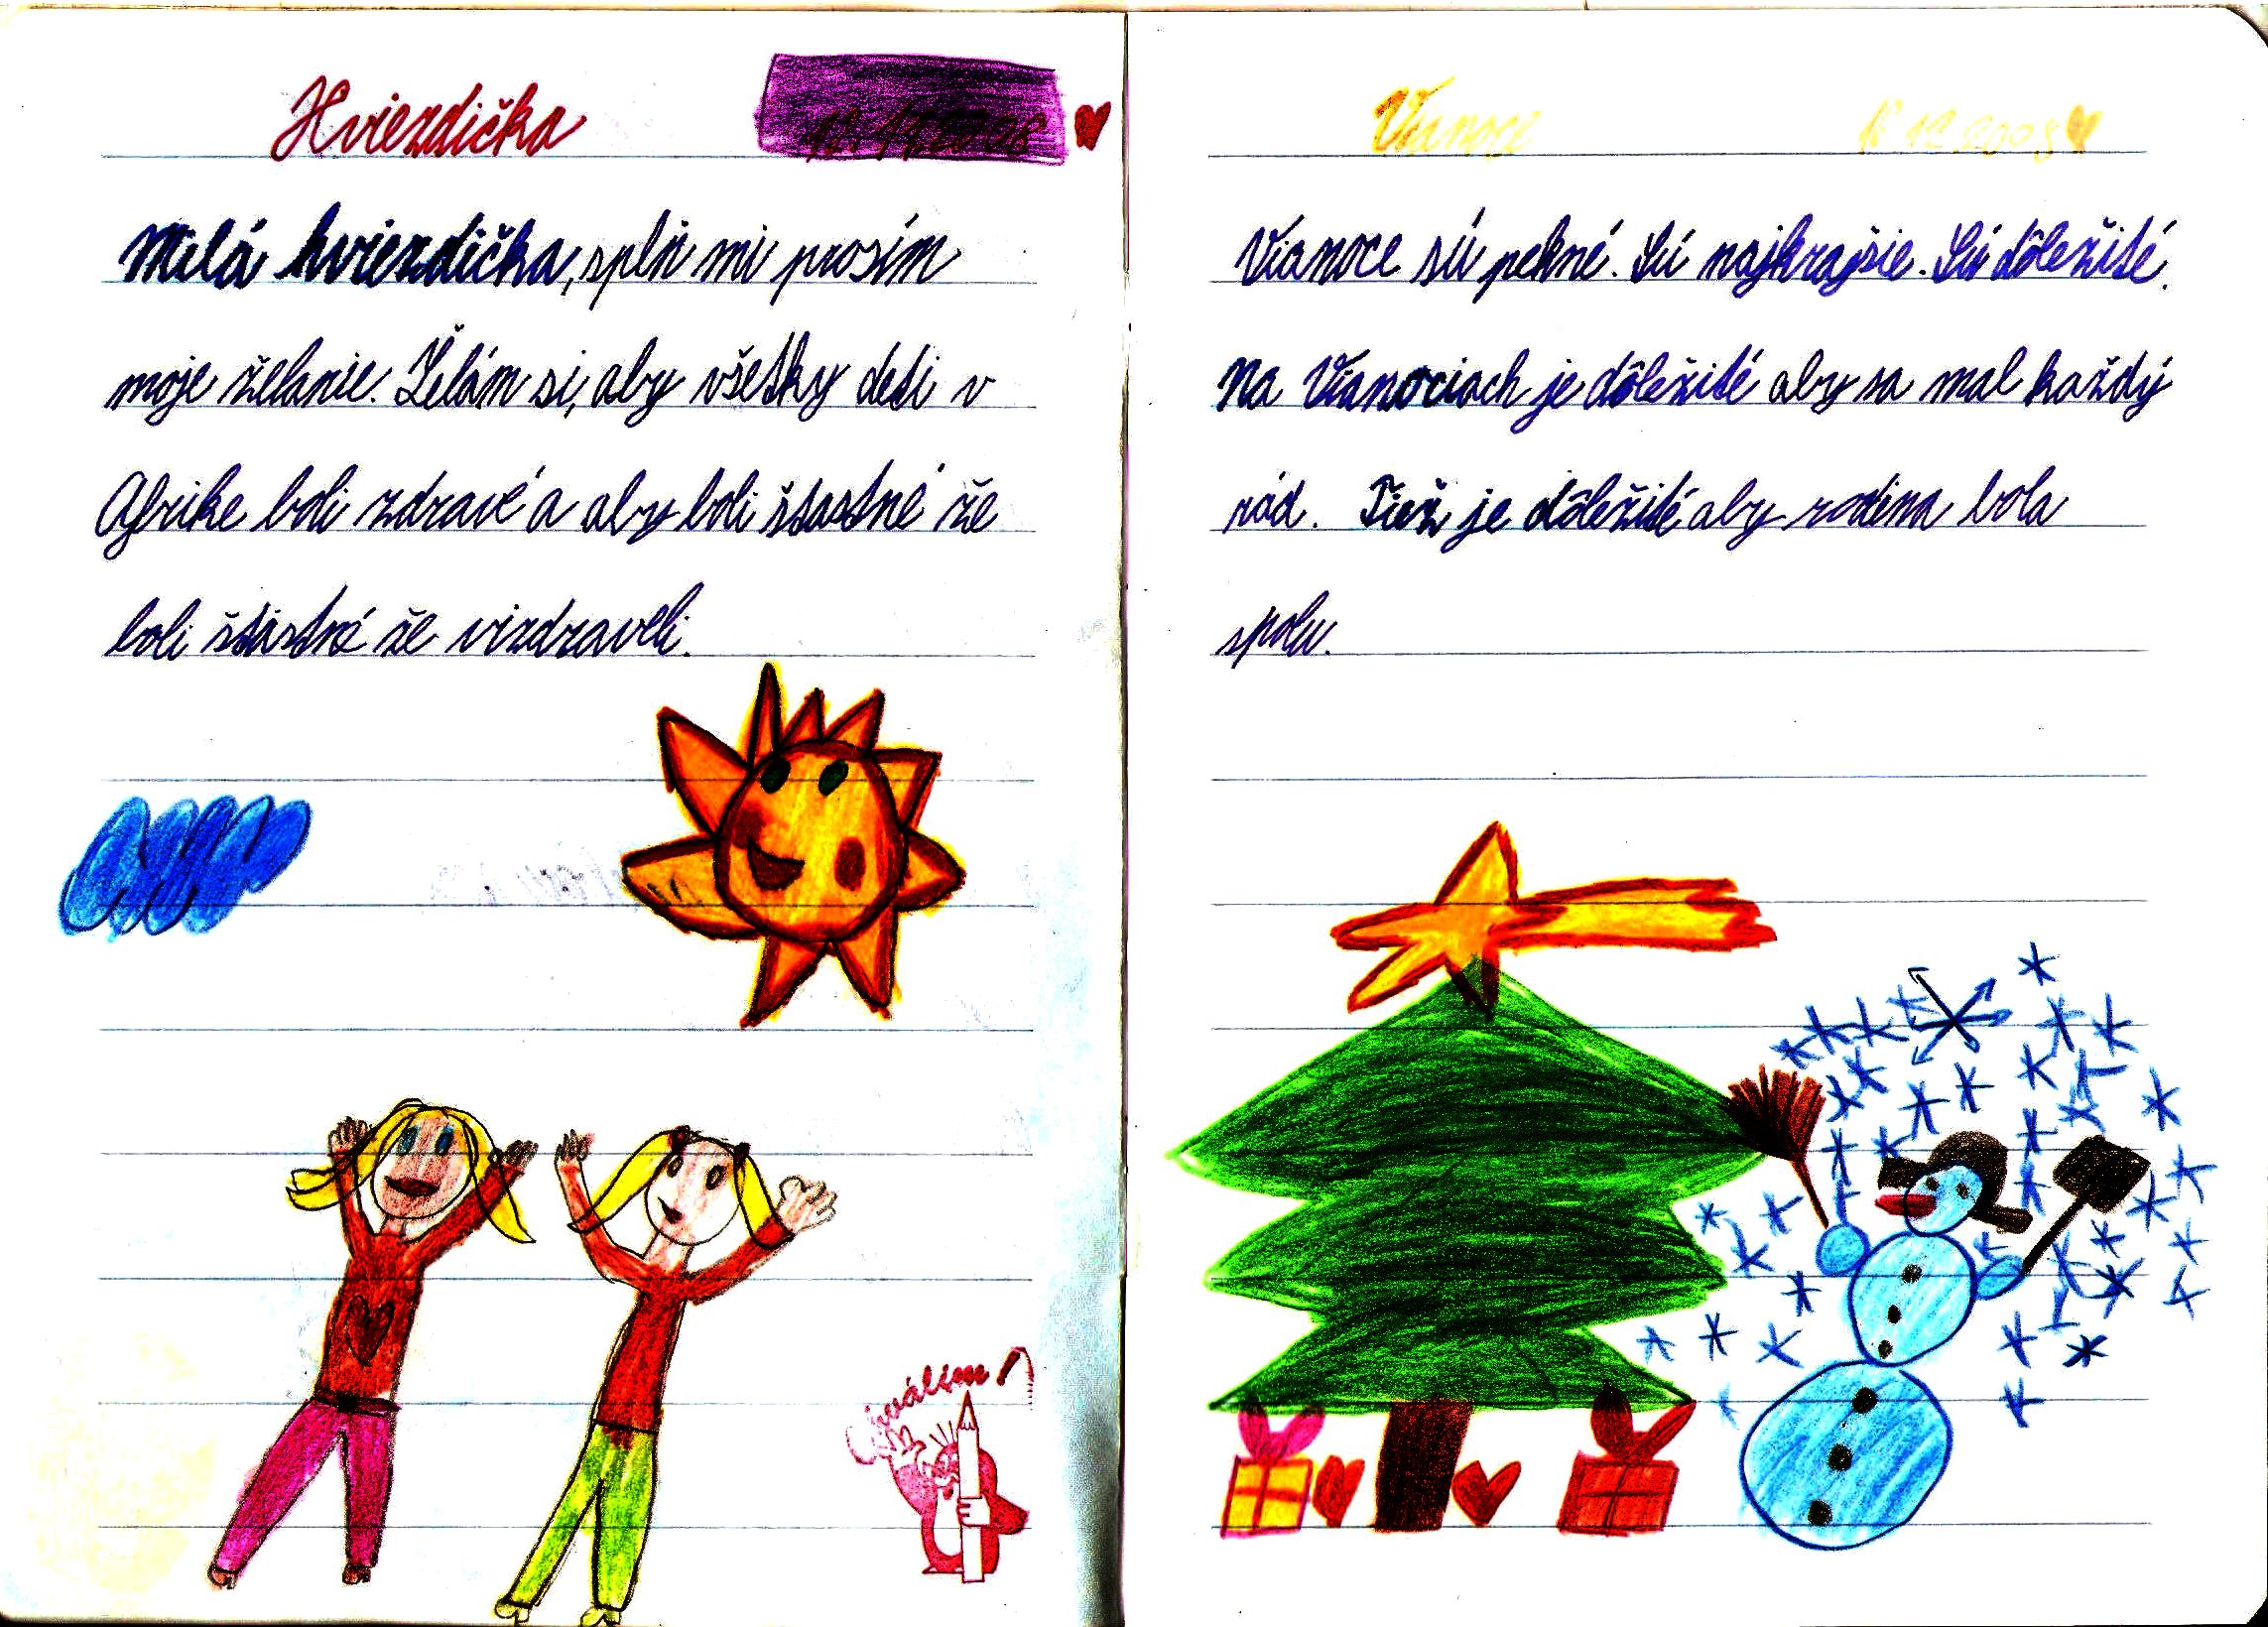 Hviezdička
Milá hviezdička, splň mi prosím
moje želanie. Želám si, aby všetky deti v
Afrike boli zdravé a aby boli štastné že
boli štastné že vizdraveli.
Vianoce 12.2008
Vianoce sú pekné. Sú najkrajšie. Sú dôležité.
Na Vianociach je dôležité aby sa mal každý
rád. Tiež je dôležité aby rodina bola
spolu.